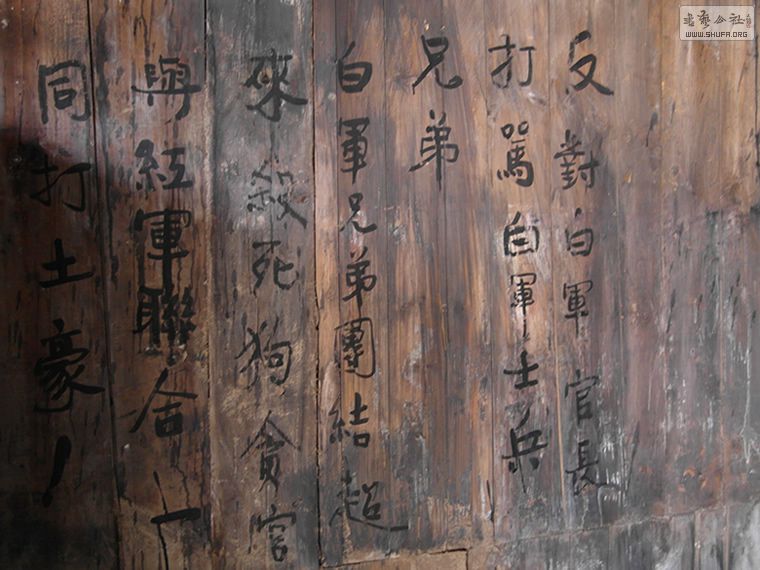 反對白軍官長
打駡白軍士兵
兄弟
白軍兄弟團結超
來殺死狗貪官
與紅軍聯合一
同打土豪！
書藝公社
WWW.SHUFA.ORG